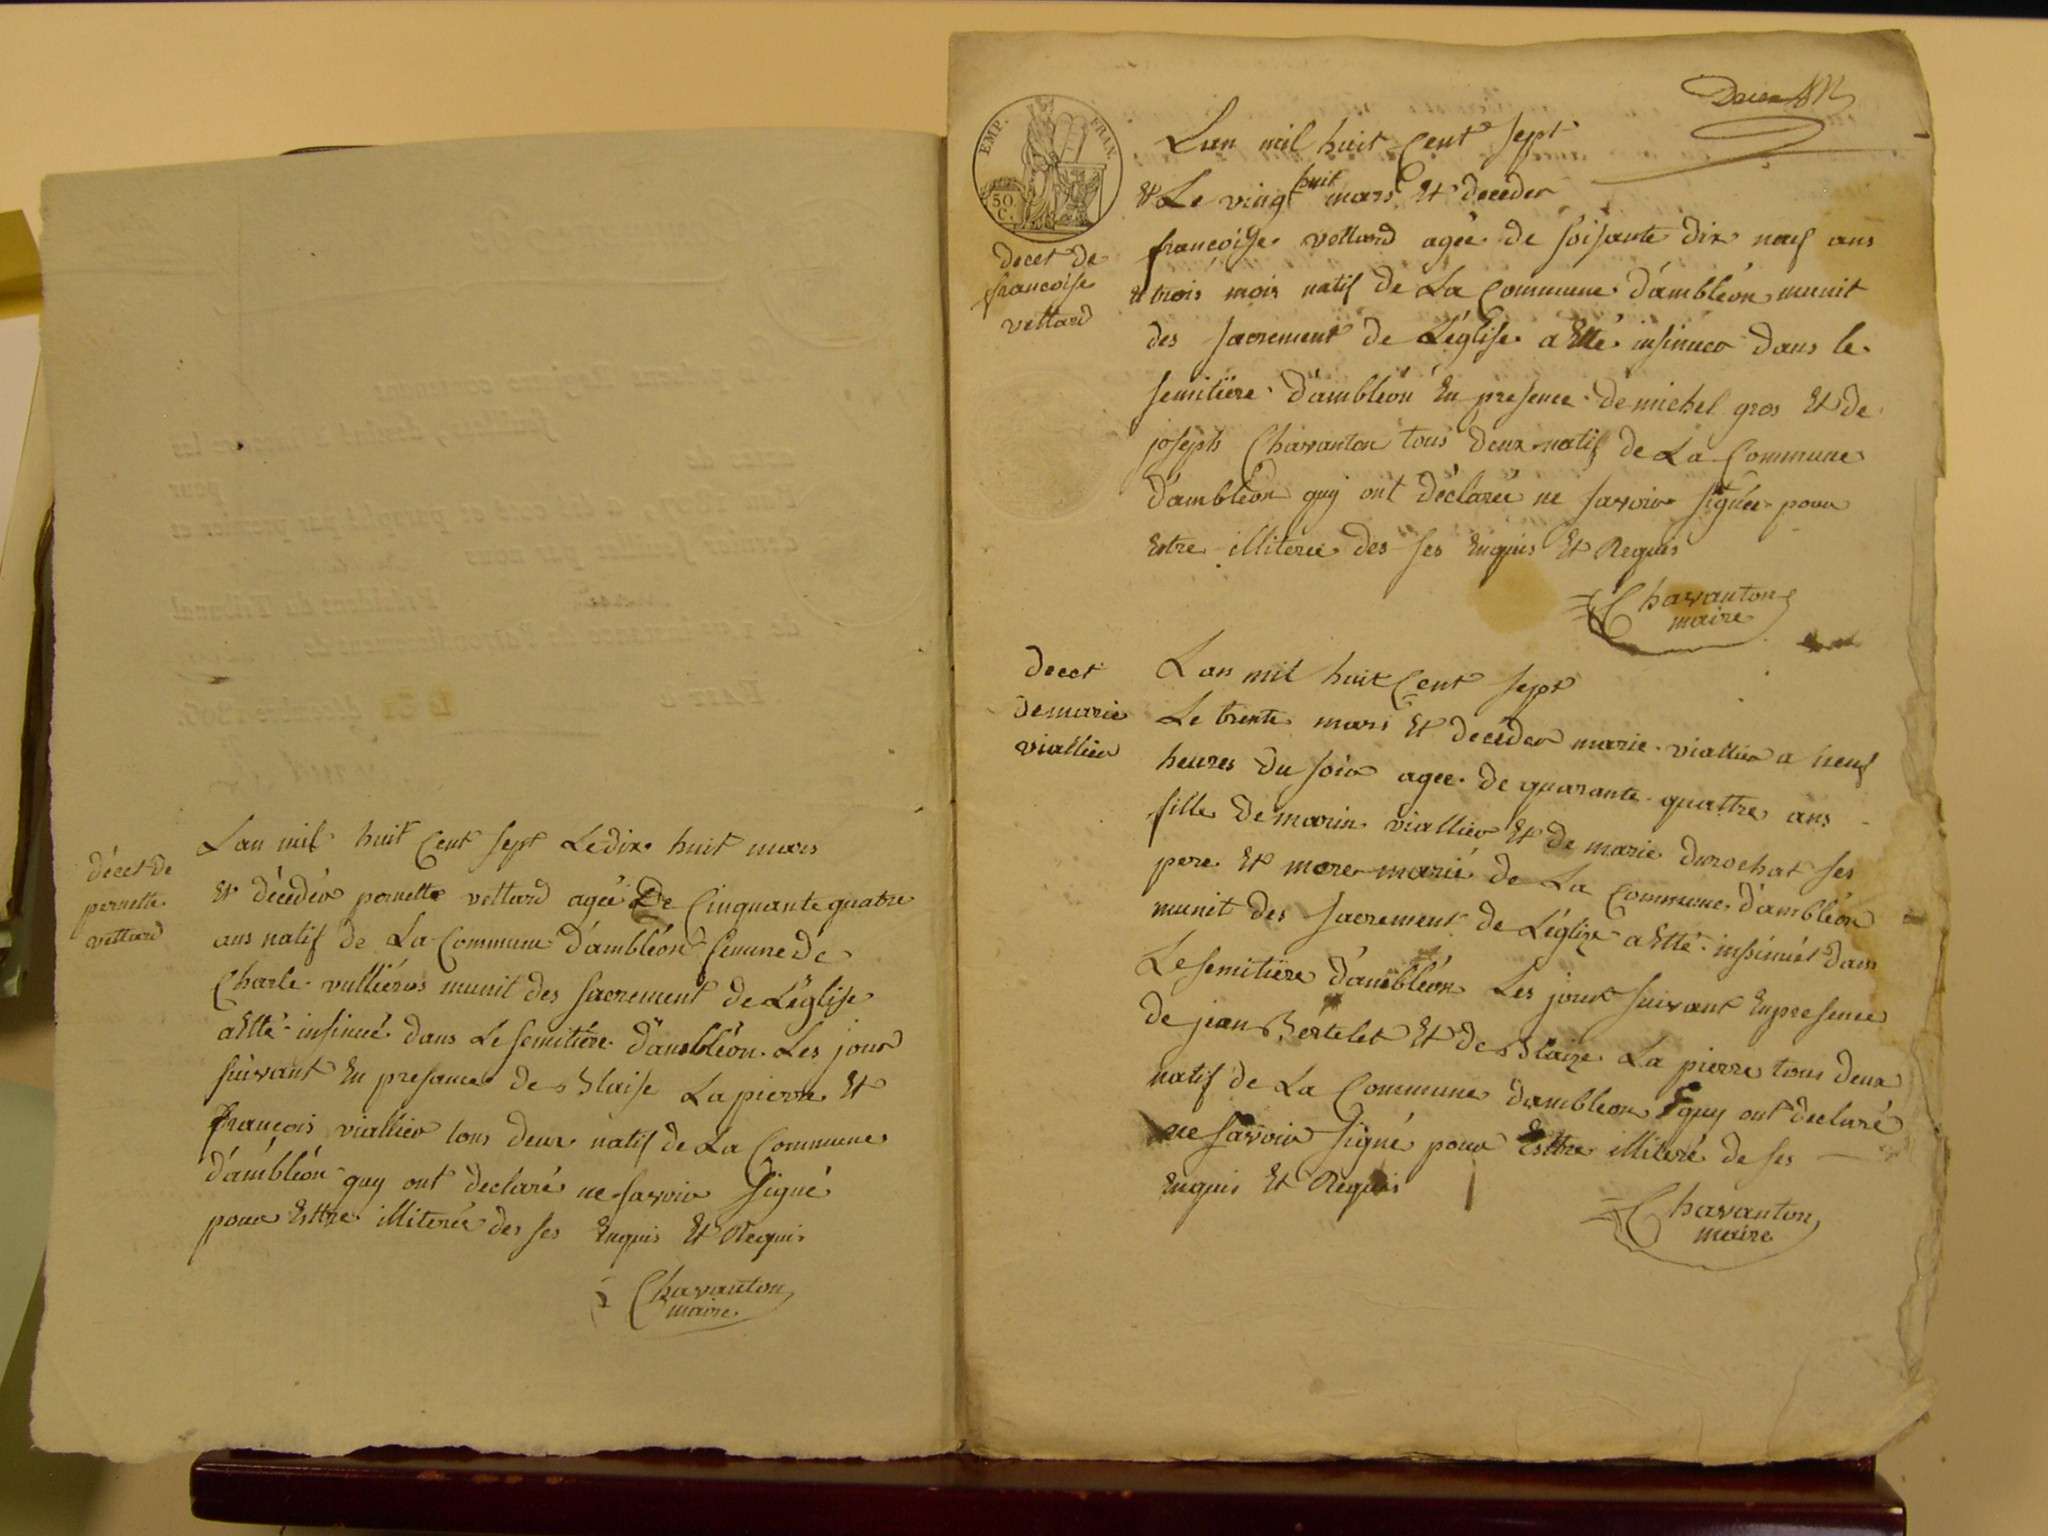 décet de
pernette
vettard
Lan mil huit Cent sept Le dix huit mars
Et décéder pernette vettard agée De Cinquante quatre
ans natif de La Commune d'ambléon femme de
Charle vulliéros munit des sacrement de Léglise
a Etté insinué dans Le semitiére d'ambléon Les jour
suivant En presance de Blaise La pierre Et
françois viallier tous deux natif de La Commune
d'ambléon quy ont déclaré ne savoir signé
pour Esttre illiterée des ses Enquis Et Requis
Chavanton
maire
EMP. FRAN.
50
C.
decet de
francoise
vettard
Lan mil huit Cent sept
huit
Et Le vingt mars Et deceder
francoise vettard agée de soisante dix neuf ans
Et trois mois natif de La Commune d'ambléon munit
des sacrement de Léglise a Etté insinuer dans le
semitiere d'ambléon En presence de michel gros Et de
joseph Chavanton tous deux natif de La Commune
d'ambléon quy ont déclarée ne savoir signée pour
Estre illiterée des ses Enquis Et Requis
Chavanton
maire
decet
de marie
viallier
Lan mil huit Cent sept
Le trente mars Et décéder marie viallier a neuf
heures du soir agee de quarante quattre ans
fille de marin viallier Et de marie durochat ses
pere Et mere marié de La Commune d'ambléon
munit des sacrement de Léglize a Etté insinuét dans
Le semitiere d'ambléon Les jour suivant En presence
de jean Bertelet Et de Blaize La pierre tous deux
natif de La Commune d'ambleon quy ont declaré
ne savoir signé pour Esttre illiteré de ses
Enquis Et Requis
Chavanton
maire